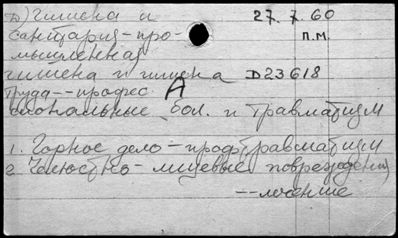 D) Гигиена и 27.7.60
санитария - про- п.м.
мышленная
гигиена и гигиена D23618
труда -- профес А
сиональные бол. и травматизм
1. Горное дело - профтравматизм
2. Челюстно - лицевые повреждения
-- лечение